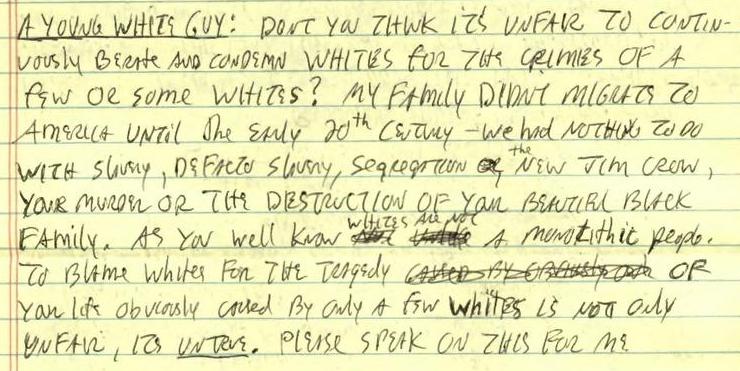 A YOUNG WHITE GUY: DON'T YOU THINK IT'S UNFAIR TO CONTIN-
UOUSLY BERATE AND CONDEMN WHITES FOR THE CRIMES OF A
FEW OR SOME WHITES? MY FAMILY DIDN'T MIGRATE TO
AMERICA UNTIL The EARLY 20th CENTURY - we had NOTHING TO DO
WITH Slavery, DEFACTO Slavery, Segregation the NEW JIM CROW,
YOUR MURDER OR THE DESTRUCTION OF YOUR BEAUTIFUL BLACK
FAMILY. AS YOU well know WHITES ARE NOT A monolithic people.
TO BLAME whites FOR THE TRAGEDY OF
YOUR life obviously caused By only A FEW WHITES IS NOT ONLY
UNFAIR, ITS UNTRUE. PLEASE SPEAK ON THIS FOR ME